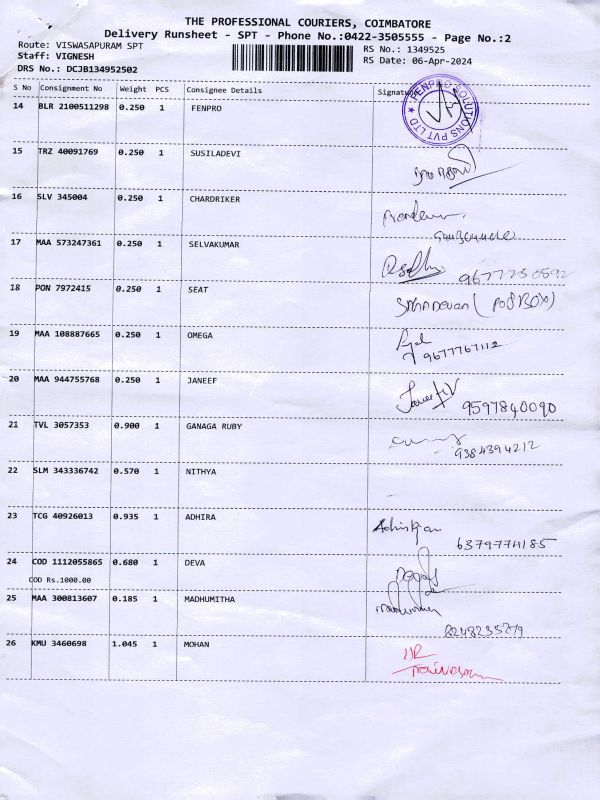 THE PROFESSIONAL COURIERS, COIMBATORE
Delivery Runsheet - SPT - Phone No.:0422-3505555 - Page No.:2
Route: VISWASAPURAM SPT
RS No.: 1349525
Staff: VIGNESH
RS Date: 06-Apr-2024
DRS No.: DCJB134952502
S No Consignment No Weight PCS Consignee Details Signature
14 BLR 2100511298 0.250 1 FENPRO
FENPRO SOLUTIONS PVT LTD ★
15 TRZ 40091769 0.250 1 SUSILADEVI
16 SLV 345004 0.250 1 CHARDRIKER
17 MAA 573247361 0.250 1 SELVAKUMAR
9677250592
18 PON 7972415 0.250 1 SEAT
SAHADEVAN (POSBOX)
19 MAA 108887665 0.250 1 OMEGA
9677767112
20 MAA 944755768 0.250 1 JANEEF
9597840090
21 TVL 3057353 0.900 1 GANAGA RUBY
9384394212
22 SLM 343336742 0.570 1 NITHYA
23 TCG 40926013 0.935 1 ADHIRA
6379774185
24 COD 1112055865 0.680 1 DEVA
COD Rs.1000.00
25 MAA 300813607 0.185 1 MADHUMITHA
8248235279
26 KMU 3460698 1.045 1 MOHAN